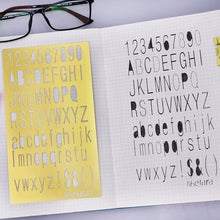 1234567890
ABCDEFGHI
JKLMNOPQ
RSTUVWXYZ
abcdefghijkl
mnopqrstu
vwxyz!$&()
1234567890
ABCDEFGHI
JKLMNOPQ
RSTUVWXYZ
abcdefghijkl
mnopqrstu
vwxyz!$&()